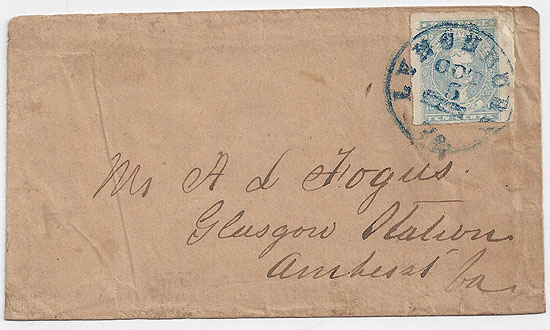 LYNCHBURG
OCT
5
VA.
TEN CENTS
Mr A L Fogus.
Glasgow Station
Amherst Va